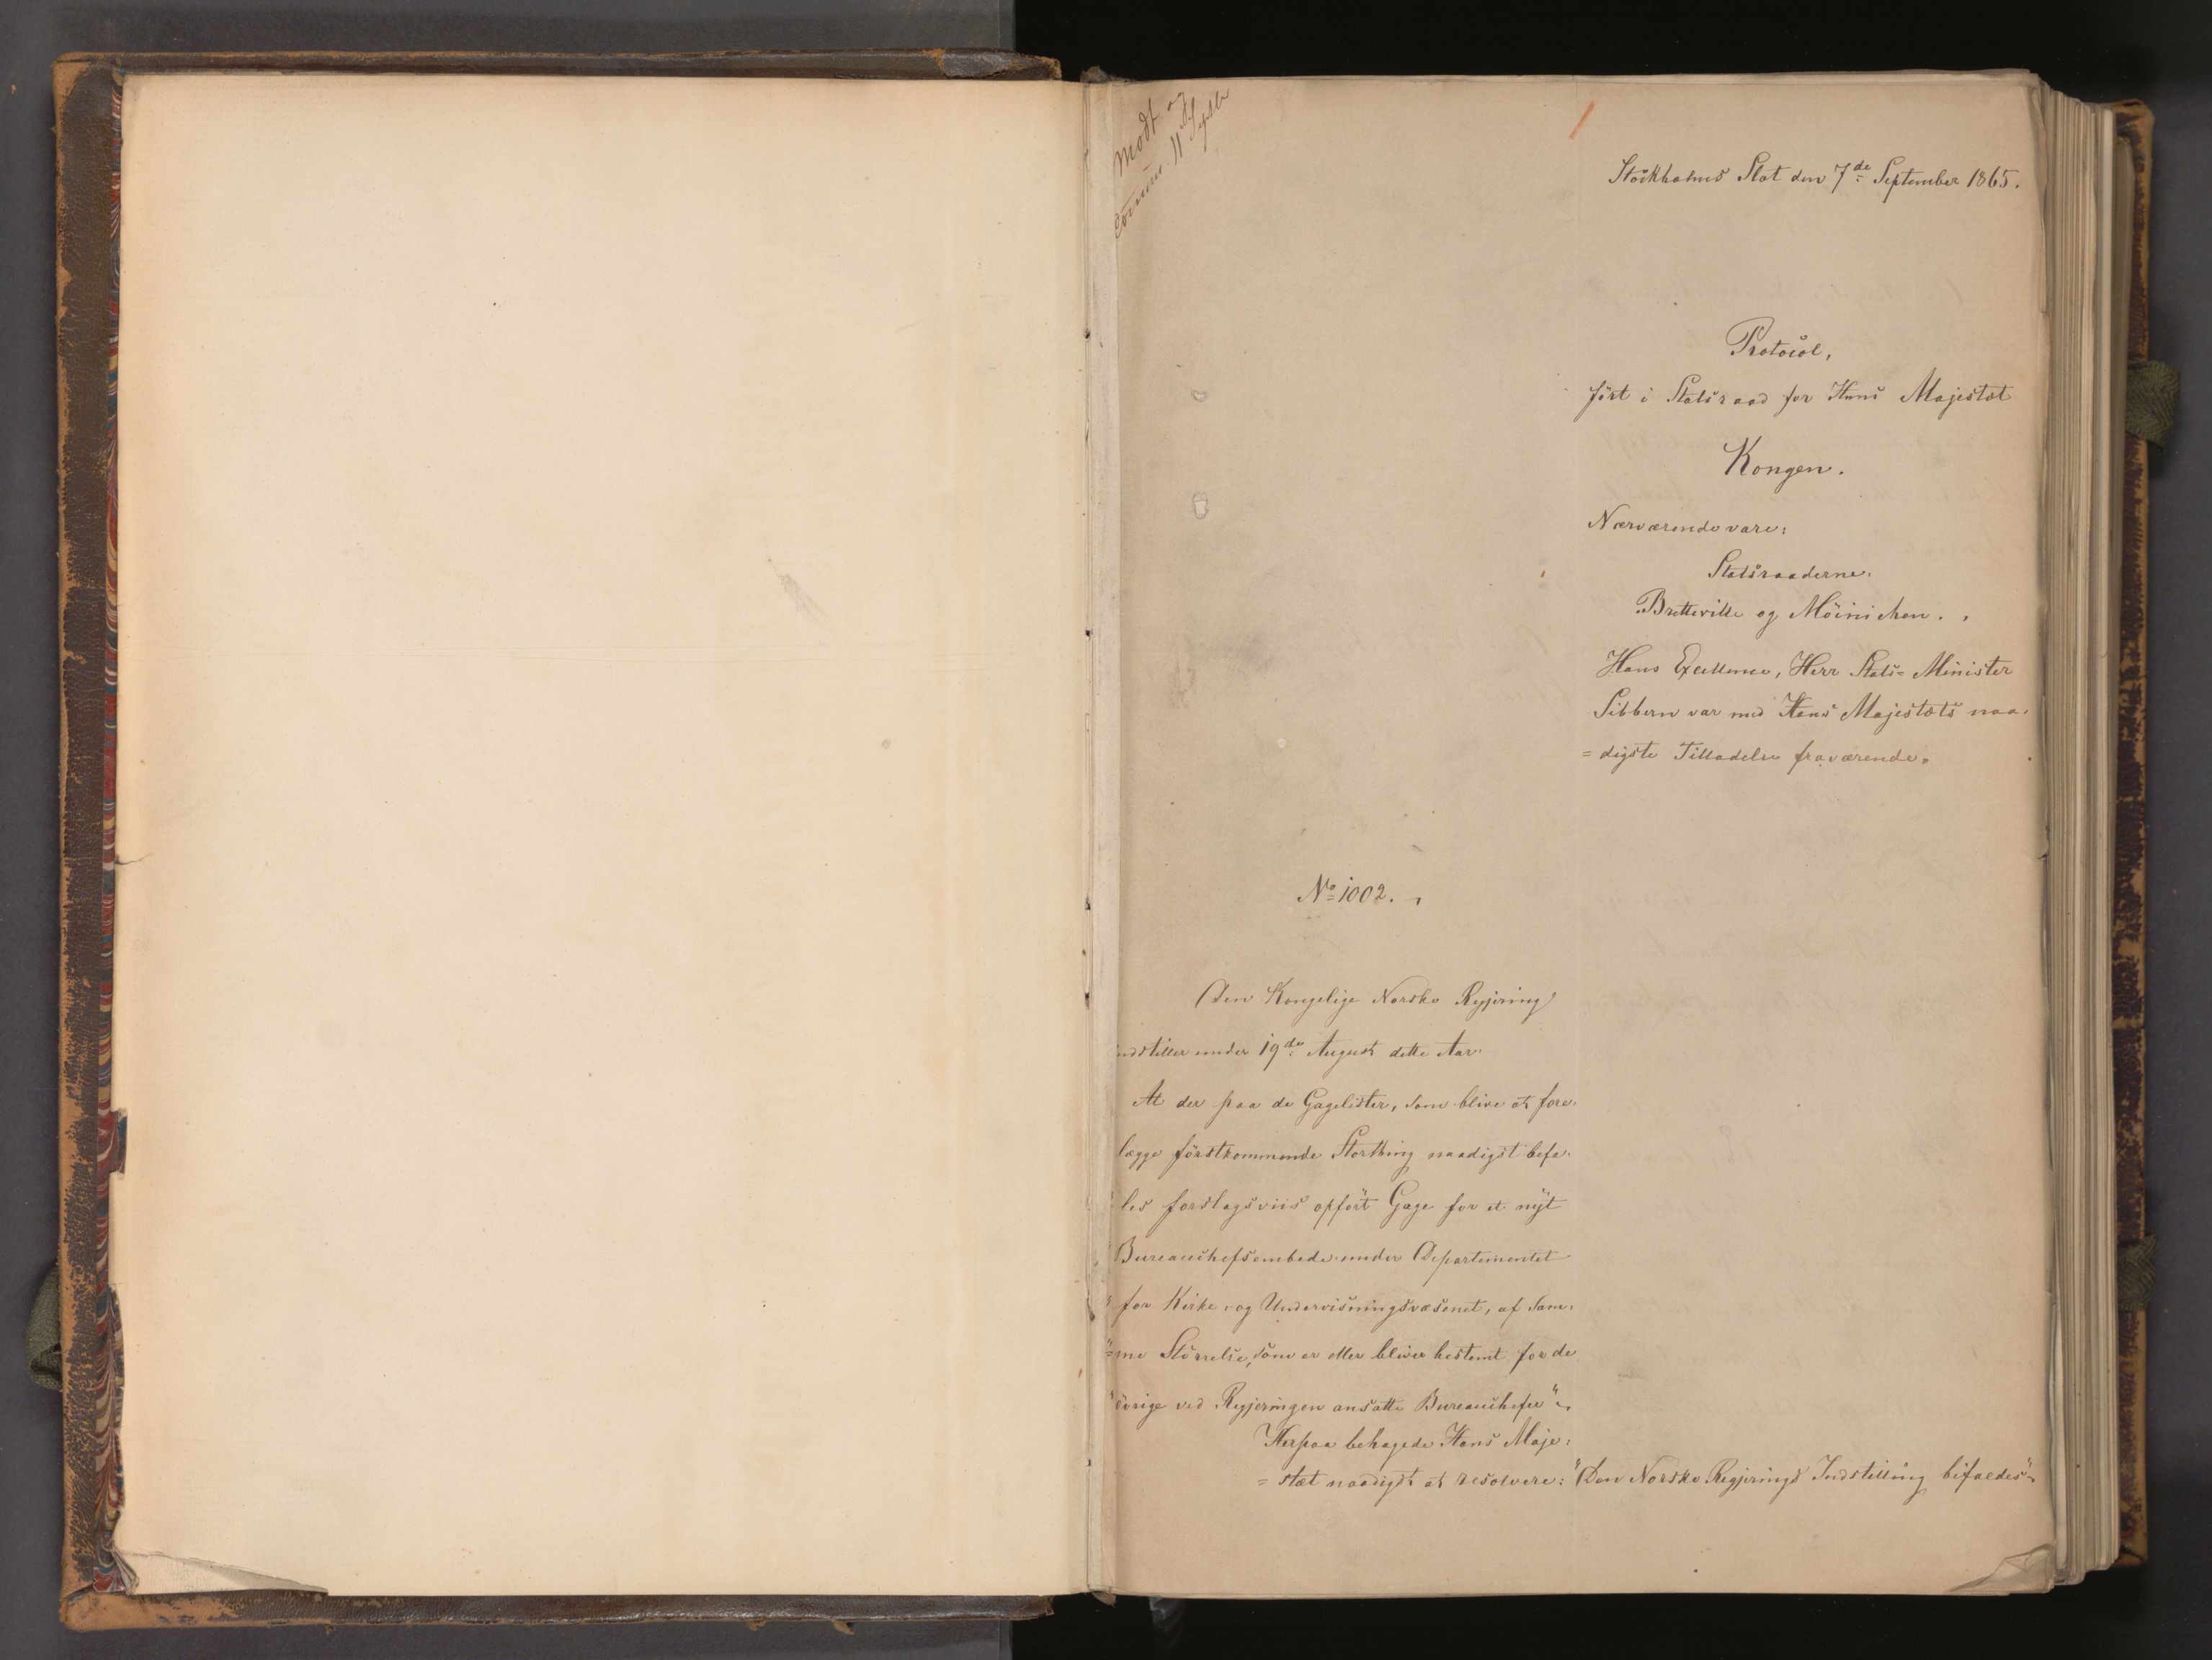 Modt og
Commun. 11 Septr
Stockholms Slot den 7de September 1865.
Protocol,
ført i Statsraad for Hans Majestæt
Kongen.
Nærværende vare:
Statsraaderne:
Bretteville og Möinichen.
Hans Excellence, Herr Stats= Minister
Sibbern var med Hans Majestæts naa=
=digste Tilladelse fraværende.
No 1002.
Den Kongelige Norske Regjering
indstiller under 19de August dette Aar:
At der paa de Gagelister, som blive at fore=
lægge förstkommende Storthing naadigst befa=
les forslagsviis opfört Gage for et nyt
Bureauchefsembede under Departementet
for Kirke= og Undervisningsvæsenet, af sam=
=me Störrelse, som er eller bliver bestemt for de
övrige ved Regjeringen ansatte Bureauchefer".
Herpaa behagede Hans Maje=
=stæt naadigst at resolvere: "Den Norske Regjerings Indstilling bifaldes".